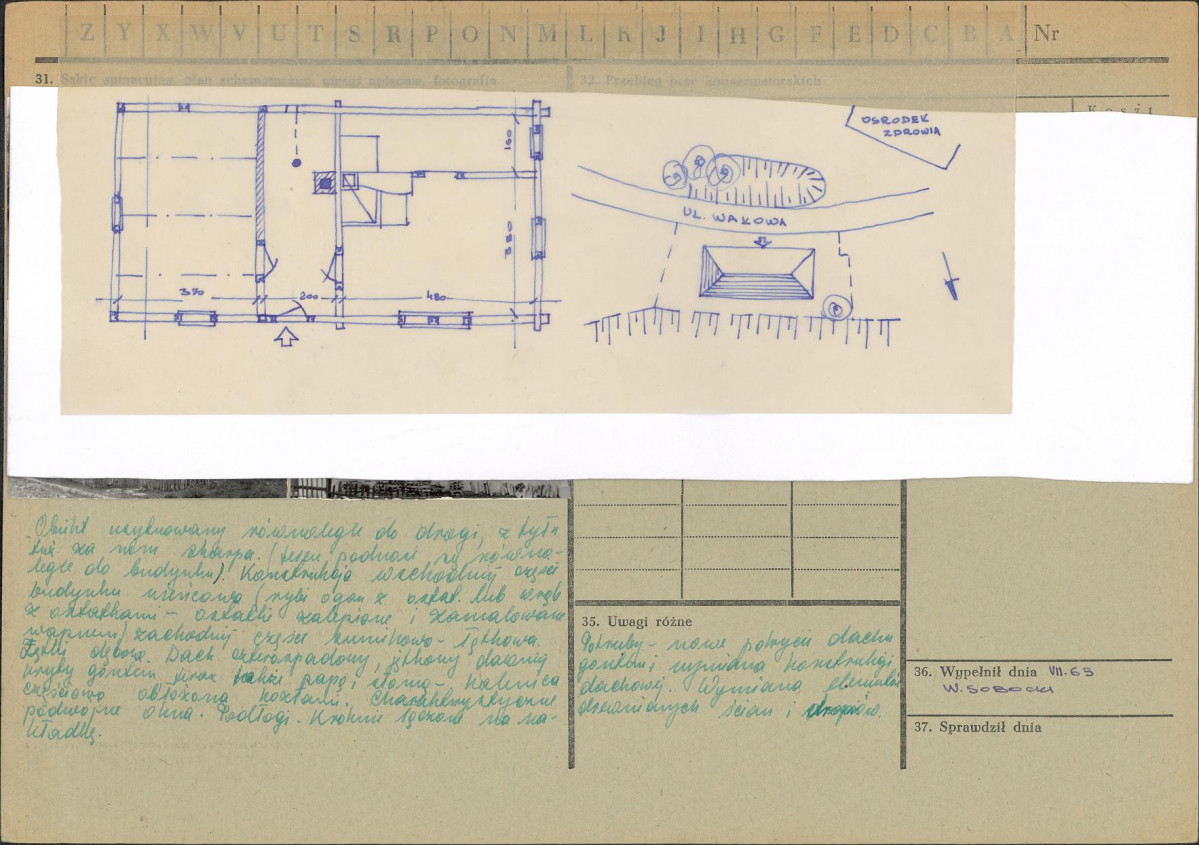 Z Y X W V U T S R P O N M L K J I H G F E D C B A Nr
31. Szkic sytuacyjny, plan schematyczny, uwagi opisowe, fotografia
32. Przebieg prac konserwatorskich
Koszt
OSRODEK
ZDROWIA
160
UL. WAKOWA
380
370
200
480
Obiekt usytuowany równolegle do drogi, z tyłu
tuż za nim skarpa. (teren podnosi się równo-
legle do budynku). Konstrukcja wschodniej części
budynku wieńcowa (rybi ogon z ostat. lub wręb
z ostatkami - ostatki zalepione i zamalowane
wapnem) zachodniej części sumikowo-łątkowa.
Dach czterospadowy, jętkowy dawniej
kryty gontem teraz także papą i słomą - kalenica
częściowo obłożona kozłami. Charakterystyczne
podwójne okna. Podłogi. Krokwie łączone na na-
kładkę.
35. Uwagi różne
Potrzeby - nowe pokrycie dachu
gontem i wymiana konstrukcji
dachowej. Wymiana elementów
drewnianych ścian i
36. Wypełnił dnia VII.63
W. SOBOCKI
37. Sprawdził dnia